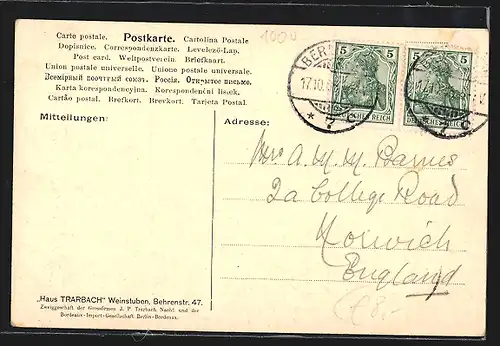 Carte postale. Postkarte. Cartolina Postale
Dopisnice. Correspondenzkarte. Levelező-Lap.
Post card. Weltpostverein. Briefkaart.
Union postale universelle. Unione postale universale.
Всемірный почтовый союзъ. Россія. Открытое письмо.
Karta korespondencyjna. Korespondenční lístek.
Cartão postal. Brefkort. Brevkort. Tarjeta Postal.
1000
5 5
DEUTSCHES REICH DEUTSCHES REICH
17.10.
* 7
Mitteilungen:
Adresse:
Mrs A. M. M. Barnes
2a College Road
Norwich
England
„Haus TRARBACH" Weinstuben, Behrenstr. 47.
Zweiggeschäft der Grossfirmen J. P. Trarbach Nachf. und der
Bordeaux-Import-Gesellschaft Berlin-Bordeaux.
€8,-